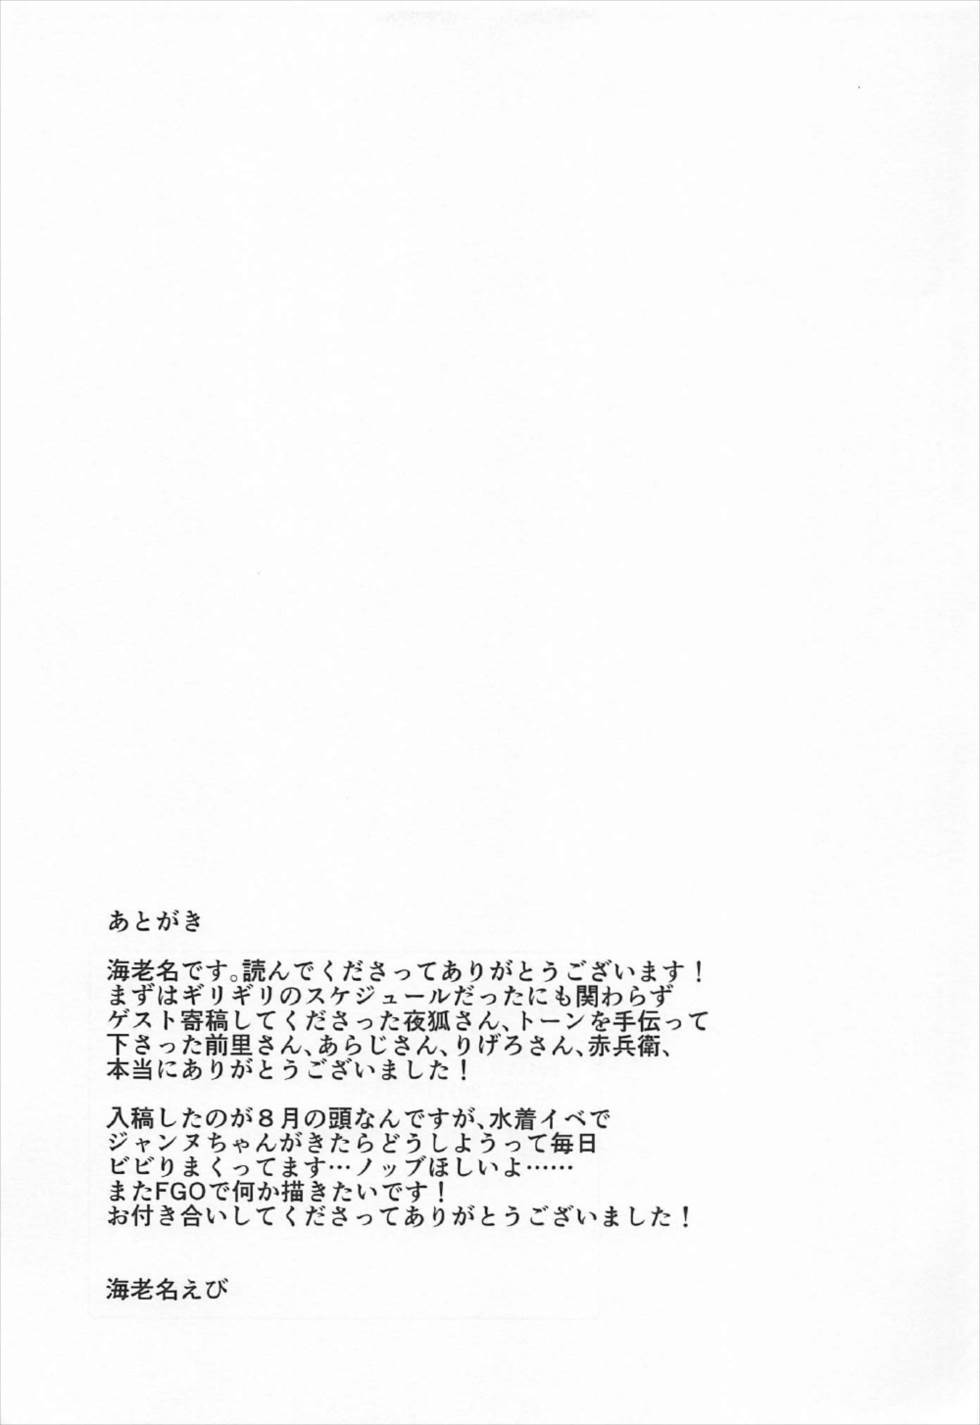 あとがき
海老名です。読んでくださってありがとうございます！
まずはギリギリのスケジュールだったにも関わらず
ゲスト寄稿してくださった夜狐さん、トーンを手伝って
下さった前里さん、あらじさん、りげろさん、赤兵衛、
本当にありがとうございました！
入稿したのが８月の頭なんですが、水着イベで
ジャンヌちゃんがきたらどうしようって毎日
ビビりまくってます…ノッブほしいよ……
またFGOで何か描きたいです！
お付き合いしてくださってありがとうございました！
海老名えび